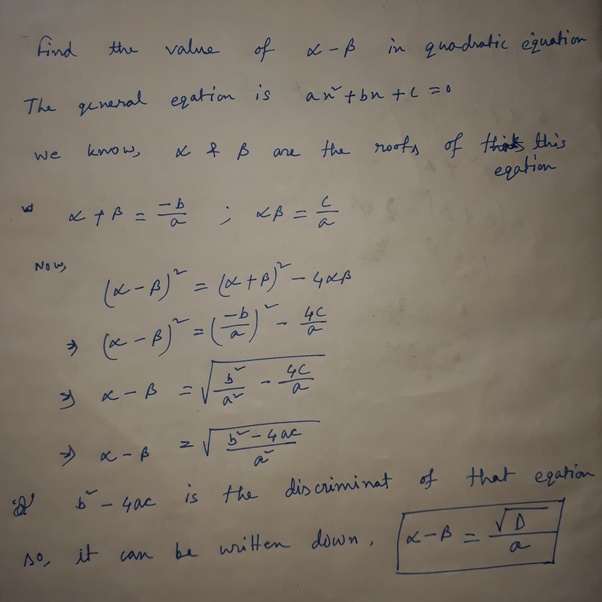 Find the value of α-β in quadratic equation
The general eqation is ax²+bx+c=0
we know, α & β are the roots of this
eqation
α+β = -b/a ; αβ = c/a
Now,
(α-β)² = (α+β)² - 4αβ
⇒ (α-β)² = (-b/a)² - 4c/a
⇒ α-β = √(b²/a² - 4c/a)
⇒ α-β = √((b²-4ac)/a²)
b²-4ac is the discriminat of that eqation
so, it can be written down. α-β = √D/a